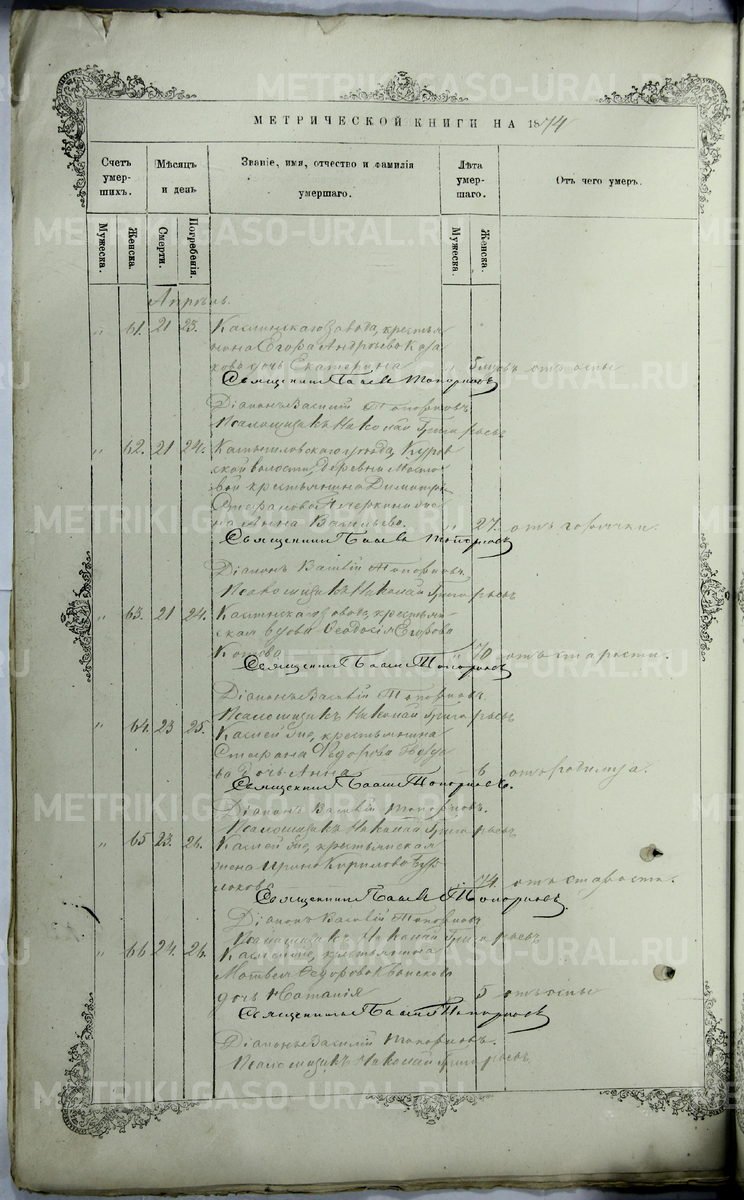 МЕТРИЧЕСКОЙ КНИГИ НА 1874
Счетъ умер-шихъ. Мѣсяцъ и день Званіе, имя, отчество и фамилія умершаго. Лѣта умер-шаго. Отъ чего умеръ.
Мужеска. Женска. Смерти. Погребенія. Мужеска. Женска.
Апрѣль.
" 61. 21 23. Каслинскаго завода, крестья-
нина Егора Андреева
дочь Екатерина 5 отъ оспы
Священникъ Павелъ Топорковъ
Діаконъ Василій Топорковъ
Псаломщикъ Николай Григорьевъ
" 62. 21 24.
ской волости, деревни
крестьянина Димитрія
Стефанова
на Анна Васильева. " 27. отъ горячки.
Священникъ Павелъ Топорковъ
Діаконъ Василій Топорковъ
Псаломщикъ Николай Григорьевъ
" 63. 21 24. Каслинскаго завода, крестьян-
ская вдова Ѳеодосія Егорова
" 70 отъ старости.
Священникъ Павелъ Топорковъ
Діаконъ Василій Топорковъ.
Псаломщикъ Николай Григорьевъ
" 64. 23 25. крестьянина
Стефана Ѳедорова
дочь Анна 6 отъ родимца.
Священникъ Павелъ Топорковъ.
Діаконъ Василій Топорковъ.
Псаломщикъ Николай Григорьевъ
" 65 23. 26. крестьянская
жена Ирина Кирилова
74. отъ старости.
Священникъ Павелъ Топорковъ
Діаконъ Василій Топорковъ
Псаломщикъ Николай Григорьевъ
" 66 24. 26. крестьянина
Матвея Ѳедорова
дочь Наталія 5 отъ оспы
Священникъ Павелъ Топорковъ
Діаконъ Василій Топорковъ.
Псаломщикъ Николай Григорьевъ
METRIKI.GASO-URAL.RU